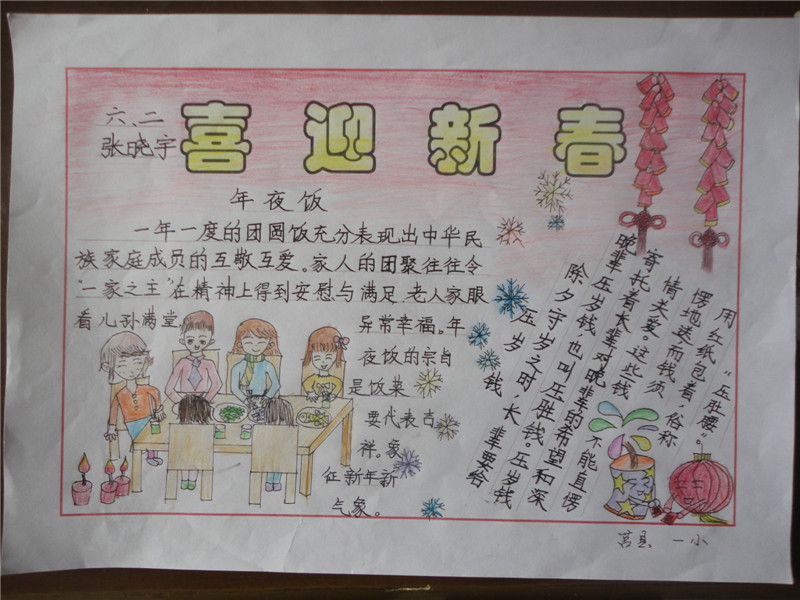 喜迎新春
六、二
张晓宇
年夜饭
一年一度的团圆饭充分表现出中华民
族家庭成员的互敬互爱。家人的团聚往往令
"一家之主"在精神上得到安慰与满足,老人家眼
看儿孙满堂,
异常幸福。年
夜饭的宗旨
是饭菜
要代表吉
祥。象
征新年新
气象。
压岁钱
除夕守岁之时,长辈要给
晚辈压岁钱,也叫压胜钱。压岁钱
寄托着长辈对晚辈的希望和深
情关爱。这些钱不能直愣
愣地递,而钱须
用红纸包着,俗称
"压肚腰"。
莒县 一小